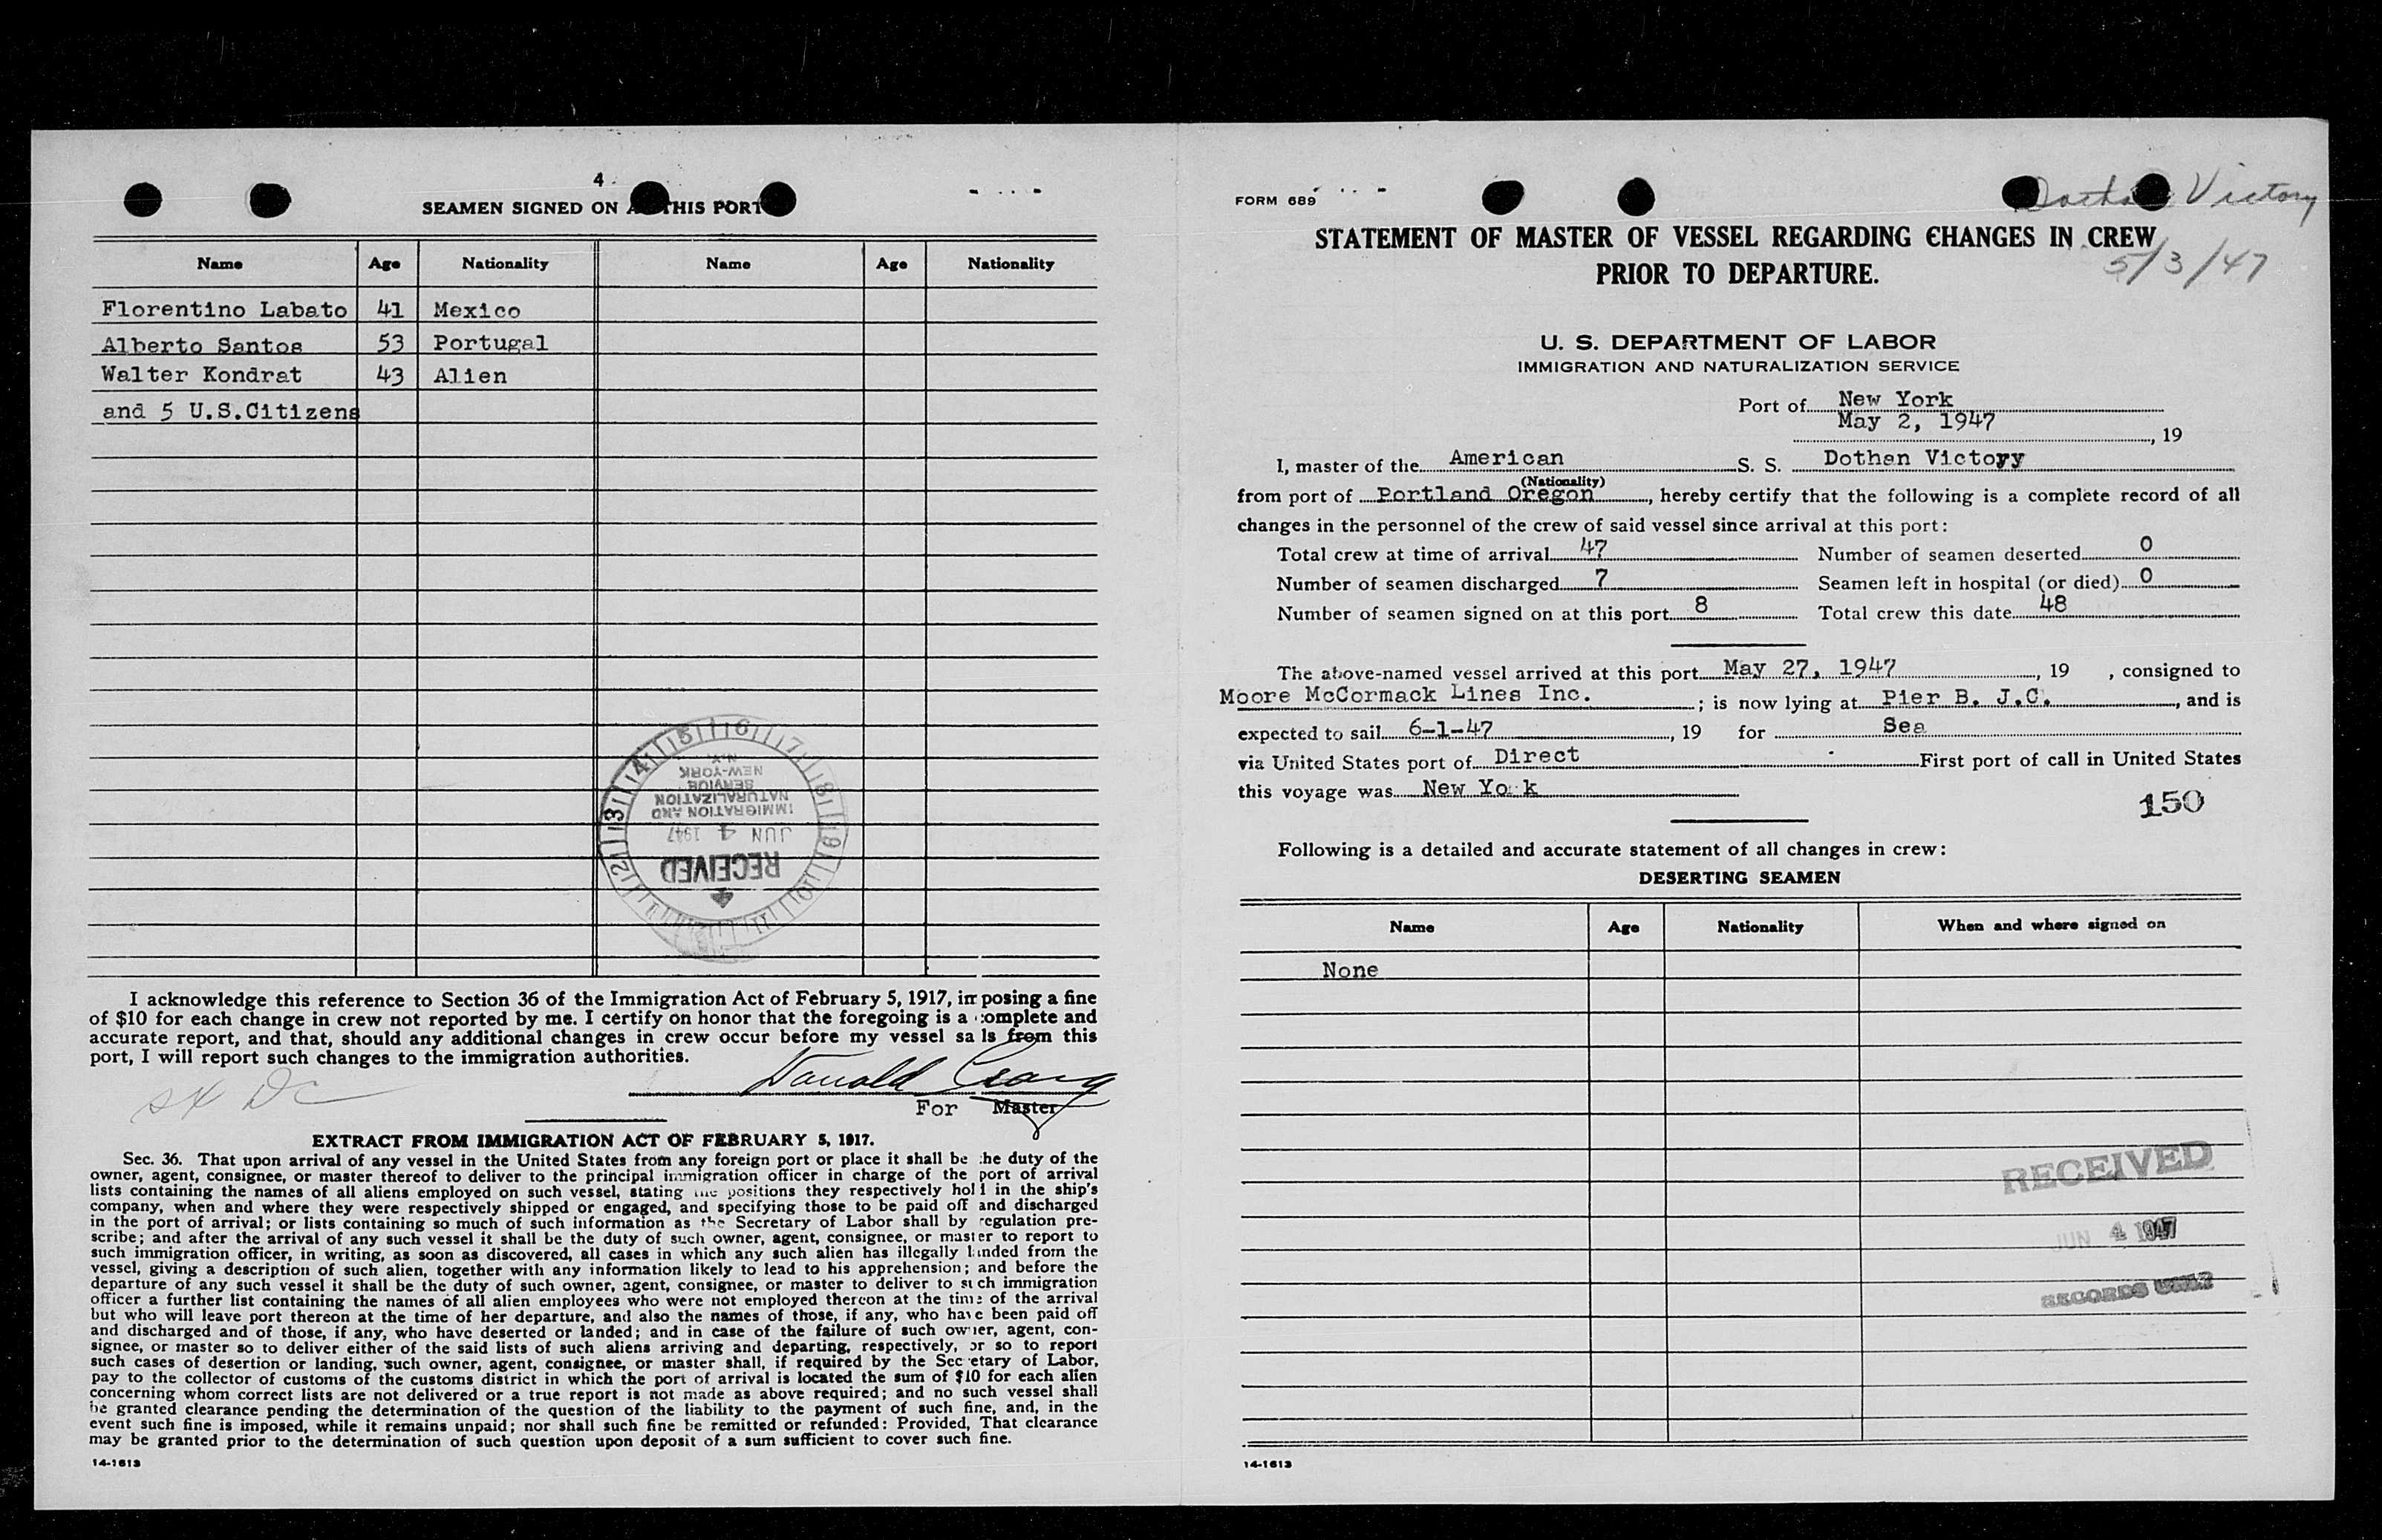 4
SEAMEN SIGNED ON AT THIS PORT
Name Age Nationality Name Age Nationality
Florentino Labato 41 Mexico
Alberto Santos 53 Portugal
Walter Kondrat 43 Alien
and 5 U.S.Citizens
IMMIGRATION AND
NATURALIZATION
SERVICE
NEW-YORK
N.Y.
JUN 4 1947
RECEIVED
I acknowledge this reference to Section 36 of the Immigration Act of February 5, 1917, imposing a fine
of $10 for each change in crew not reported by me. I certify on honor that the foregoing is a complete and
accurate report, and that, should any additional changes in crew occur before my vessel sails from this
port, I will report such changes to the immigration authorities.
Donald Craig
For Master
EXTRACT FROM IMMIGRATION ACT OF FEBRUARY 5, 1917.
Sec. 36. That upon arrival of any vessel in the United States from any foreign port or place it shall be the duty of the
owner, agent, consignee, or master thereof to deliver to the principal immigration officer in charge of the port of arrival
lists containing the names of all aliens employed on such vessel, stating the positions they respectively hold in the ship's
company, when and where they were respectively shipped or engaged, and specifying those to be paid off and discharged
in the port of arrival; or lists containing so much of such information as the Secretary of Labor shall by regulation pre-
scribe; and after the arrival of any such vessel it shall be the duty of such owner, agent, consignee, or master to report to
such immigration officer, in writing, as soon as discovered, all cases in which any such alien has illegally landed from the
vessel, giving a description of such alien, together with any information likely to lead to his apprehension; and before the
departure of any such vessel it shall be the duty of such owner, agent, consignee, or master to deliver to such immigration
officer a further list containing the names of all alien employees who were not employed thereon at the time of the arrival
but who will leave port thereon at the time of her departure, and also the names of those, if any, who have been paid off
and discharged and of those, if any, who have deserted or landed; and in case of the failure of such owner, agent, con-
signee, or master so to deliver either of the said lists of such aliens arriving and departing, respectively, or so to report
such cases of desertion or landing, such owner, agent, consignee, or master shall, if required by the Secretary of Labor,
pay to the collector of customs of the customs district in which the port of arrival is located the sum of $10 for each alien
concerning whom correct lists are not delivered or a true report is not made as above required; and no such vessel shall
be granted clearance pending the determination of the question of the liability to the payment of such fine, and, in the
event such fine is imposed, while it remains unpaid; nor shall such fine be remitted or refunded: Provided, That clearance
may be granted prior to the determination of such question upon deposit of a sum sufficient to cover such fine.
14-1613
FORM 689
Dothan Victory
5/3/47
STATEMENT OF MASTER OF VESSEL REGARDING CHANGES IN CREW
PRIOR TO DEPARTURE.
U. S. DEPARTMENT OF LABOR
IMMIGRATION AND NATURALIZATION SERVICE
Port of New York
May 2, 1947, 19
I, master of the American S. S. Dothan Victoyy
(Nationality)
from port of Portland Oregon, hereby certify that the following is a complete record of all
changes in the personnel of the crew of said vessel since arrival at this port:
Total crew at time of arrival 47 Number of seamen deserted 0
Number of seamen discharged 7 Seamen left in hospital (or died) 0
Number of seamen signed on at this port 8 Total crew this date 48
The above-named vessel arrived at this port May 27, 1947, 19 , consigned to
Moore McCormack Lines Inc. ; is now lying at Pier B. J.C. , and is
expected to sail 6-1-47, 19 for Sea
via United States port of Direct First port of call in United States
this voyage was New York
150
Following is a detailed and accurate statement of all changes in crew:
DESERTING SEAMEN
Name Age Nationality When and where signed on
None
RECEIVED
JUN 4 1947
RECORDS UNIT
14-1613